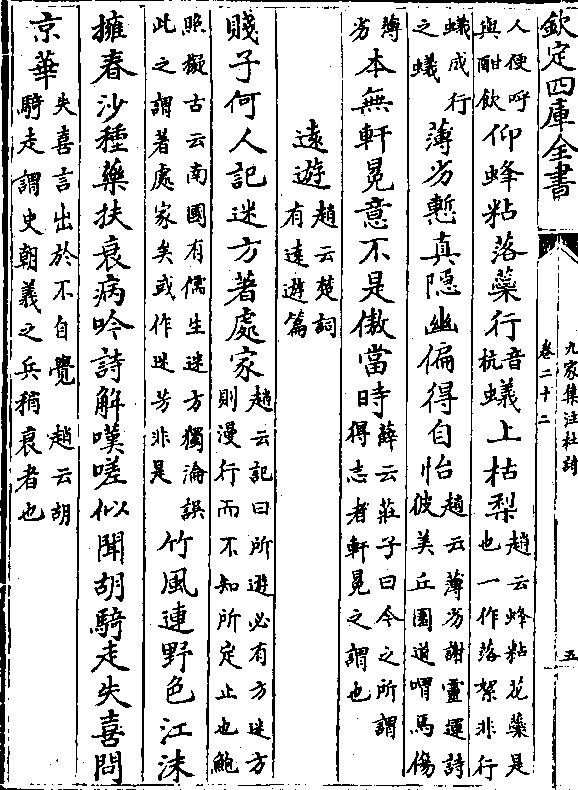 欽定四庫全書
九家集注杜詩
卷二十二
五
人便呼
與酣飲
仰蜂粘落蘂行
音
杭
蟻上枯梨
趙云蜂粘花蘂是
也一作落絮非行
蟻成行
之蟻
薄劣慙真隠幽偏得自怡
趙云薄劣謝靈運詩
彼美丘園道喟焉傷
薄
劣
本無軒冕意不是傲當時
薛云莊子曰今之所謂
得志者軒冕之謂也
遠遊
趙云楚詞
有遠遊篇
賤子何人記迷方著處家
趙云記曰所遊必有方迷方
則漫行而不知所定止也鮑
照擬古云南國有儒生迷方獨淪誤
此之謂著處家矣或作迷芳非是
竹風連野色江沫
擁春沙種藥扶衰病吟詩解嘆嗟似聞胡騎走失喜問
京華
失喜言出於不自覺　趙云胡
騎走謂史朝義之兵稍衰者也